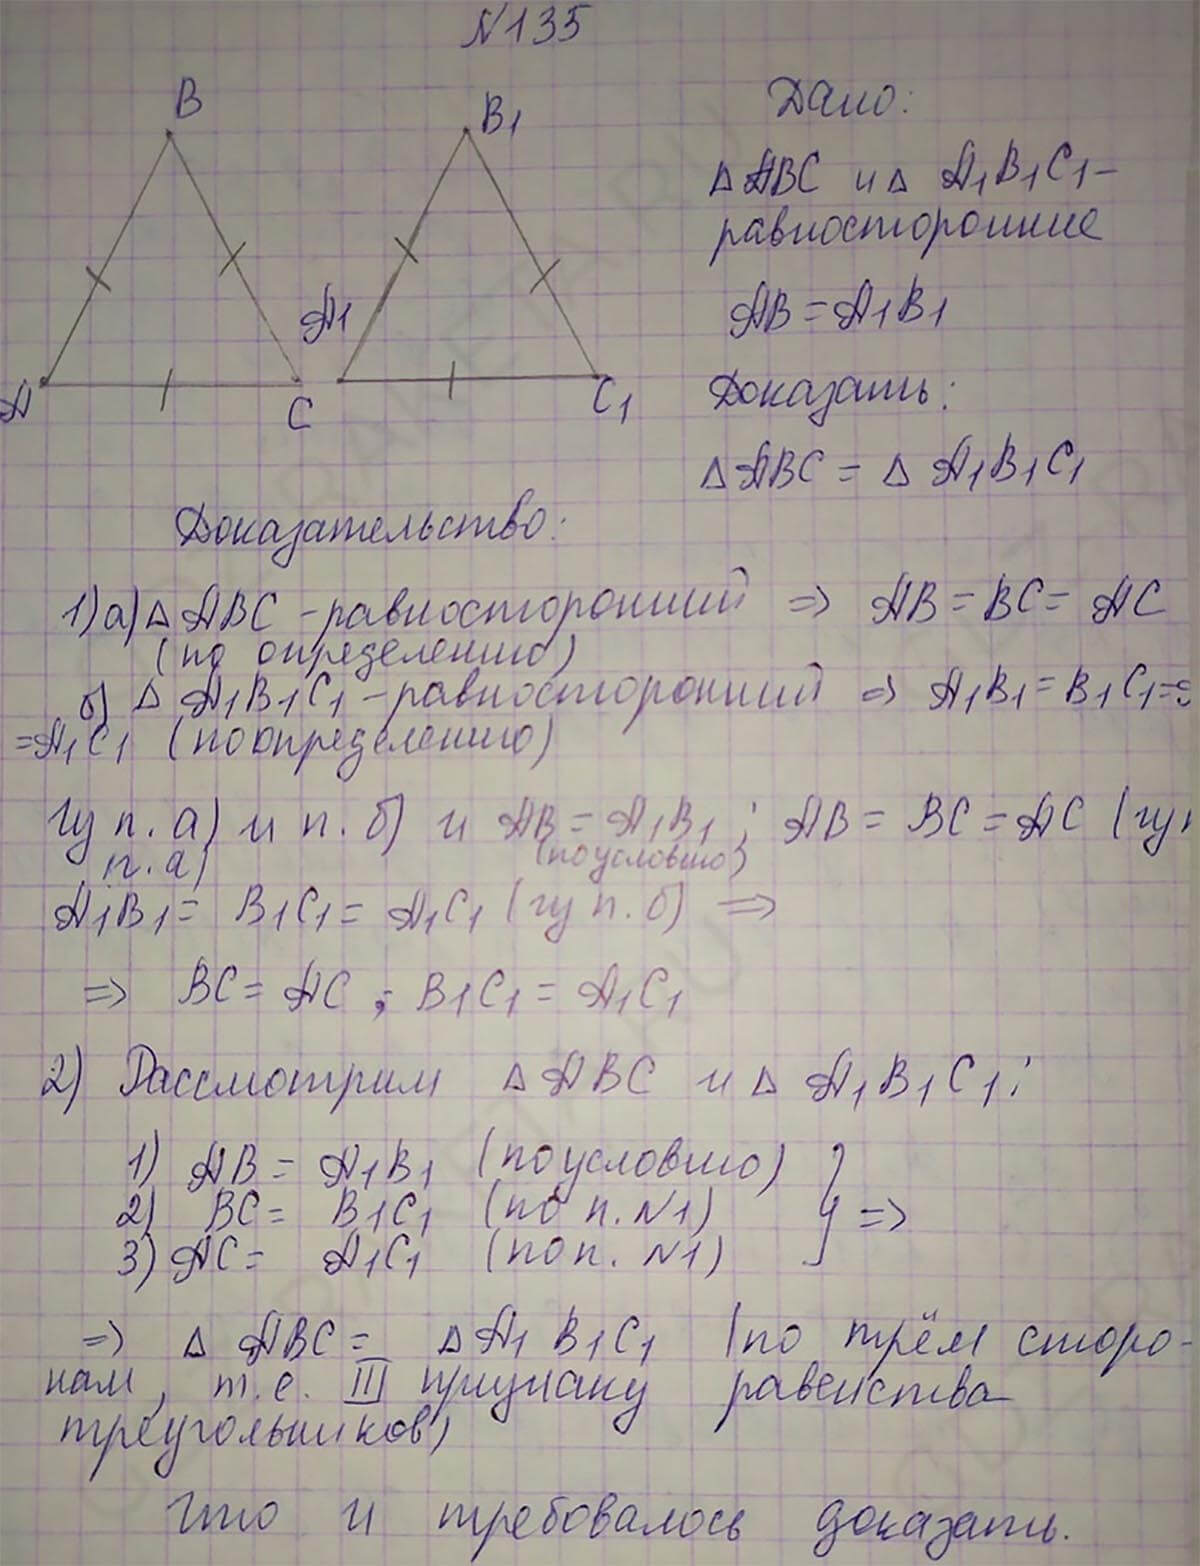 N135
B
B1
Дано:
△ABC и △ A1B1C1-
равносторонние
AB=A1B1
A1
A
C
C1
Доказать:
△ABC = △ A1B1C1
Доказательство:
1)а)△ ABC -равносторонний => AB = BC= AC
(по определению)
б) △ A1B1C1-равносторонний => A1B1=B1C1=
=A1C1 (по определению)
Из п. а) и п. б) и AB=A1B1 ; AB= BC=AC (из
п.а) (по условию)
A1B1= B1C1= A1C1 (из п. б) =>
=> BC= AC ; B1C1= A1C1
2) Рассмотрим △ABC и △ A1B1C1:
1) AB= A1B1 (по условию)
2) BC= B1C1 (по п. N1) } =>
3) AC= A1C1 (по п. N1)
=> △ ABC= △A1 B1C1 (по трём сторо-
нам, т.е. III признаку равенства
треугольников)
Что и требовалось доказать.